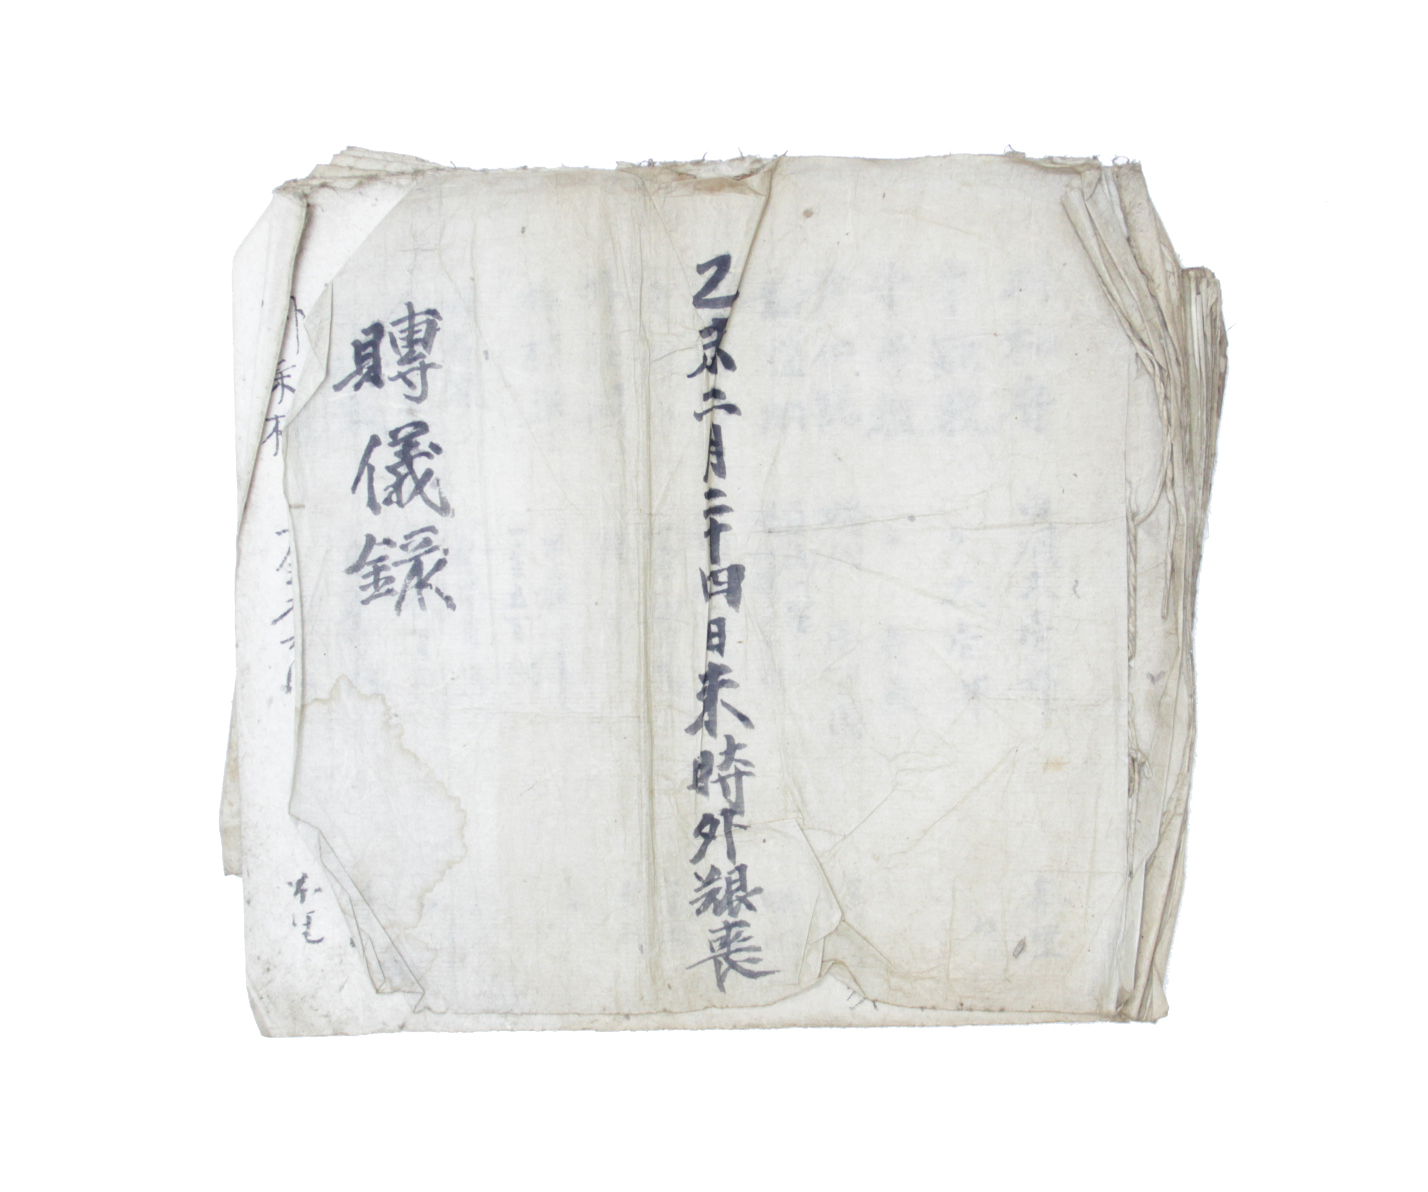 乙亥二月二十四日未時外艱喪
賻儀錄